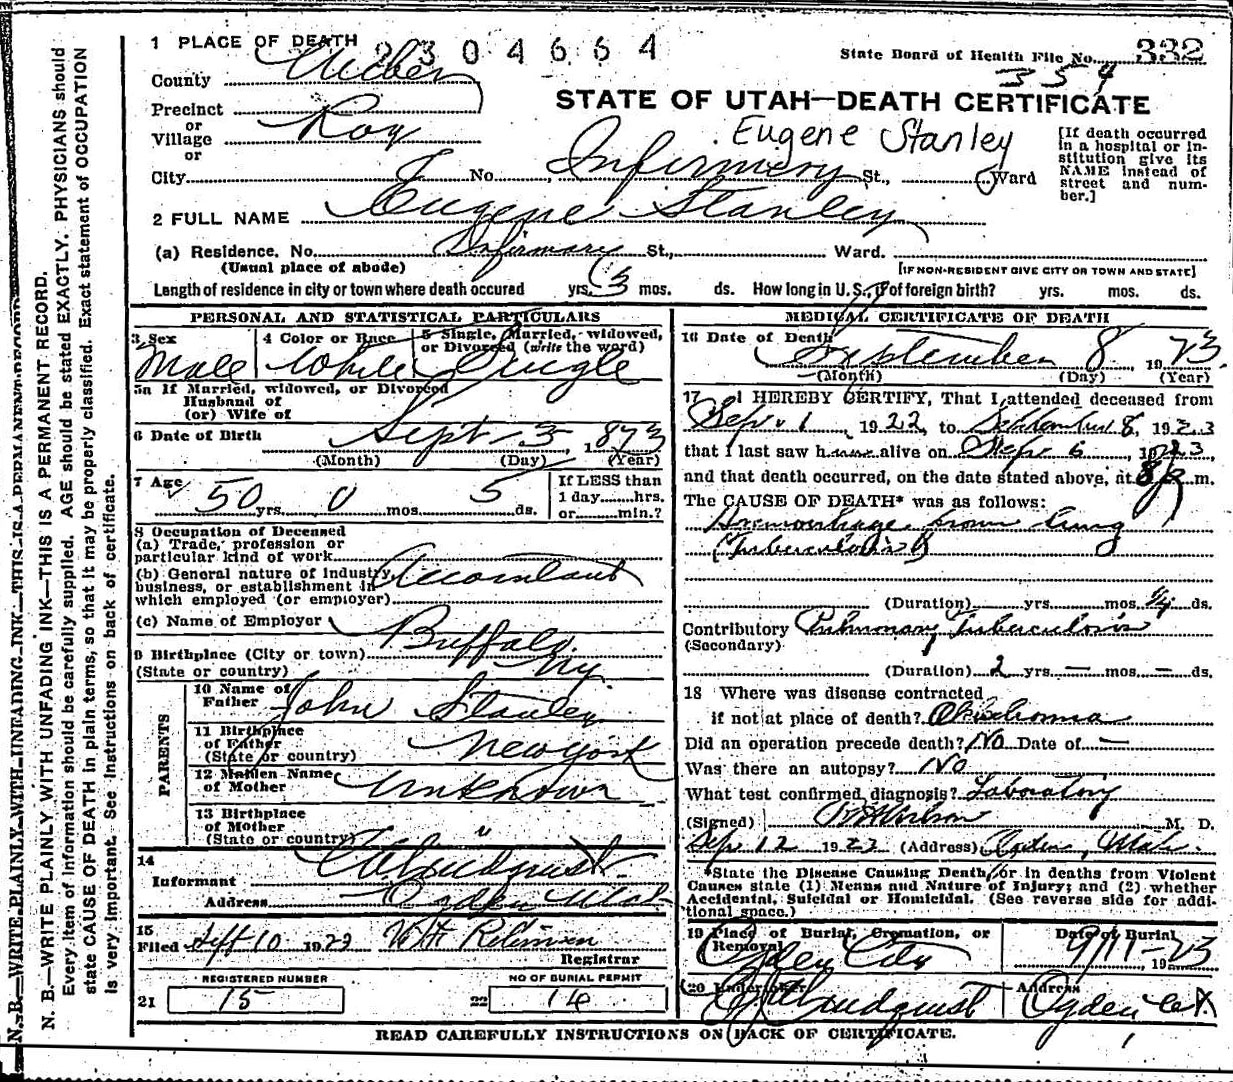 1 PLACE OF DEATH 2304664
State Board of Health File No. 332
354
County Weber
STATE OF UTAH—DEATH CERTIFICATE
Precinct
or
Village Roy
or
Eugene Stanley
City No. Infirmery St., Ward
[If death occurred in a hospital or institution give its NAME instead of street and number.]
2 FULL NAME Eugene Stanley
(a) Residence. No. Infirmary St., Ward.
(Usual place of abode) [IF NON-RESIDENT GIVE CITY OR TOWN AND STATE]
Length of residence in city or town where death occured yrs. 3 mos. ds. How long in U. S., if of foreign birth? yrs. mos. ds.
PERSONAL AND STATISTICAL PARTICULARS
3 Sex Male
4 Color or Race White
5 Single, Married, widowed, or Divorced (write the word) Single
5a If Married, widowed, or Divorced
Husband of
(or) Wife of
6 Date of Birth Sept 3, 1873
(Month) (Day) (Year)
7 Age 50 yrs. 0 mos. 5 ds.
If LESS than
1 day hrs.
or min.?
8 Occupation of Deceased
(a) Trade, profession or
particular kind of work Accountant
(b) General nature of industry,
business, or establishment in
which employed (or employer)
(c) Name of Employer
9 Birthplace (City or town) Buffalo
(State or country) NY.
PARENTS
10 Name of Father John Stanley
11 Birthplace of Father (State or country) New York
12 Maiden Name of Mother Unknown
13 Birthplace of Mother (State or country) "
14
Informant
Address Ogden Utah
15
Filed Sept 10 1923
Registrar
REGISTERED NUMBER
21 15
NO OF BURIAL PERMIT
22 14
MEDICAL CERTIFICATE OF DEATH
16 Date of Death September 8 1923
(Month) (Day) (Year)
17 I HEREBY CERTIFY, That I attended deceased from
Sep. 1, 1922, to September 8, 1923
that I last saw h alive on Sep. 6, 1923,
and that death occurred, on the date stated above, at 8 m.
The CAUSE OF DEATH* was as follows:
Hemorrhage from lung
(Tuberculosis)
(Duration) yrs. mos. 1/4 ds.
Contributory Pulmonary Tuberculosis
(Secondary)
(Duration) 2 yrs. — mos. — ds.
18 Where was disease contracted
if not at place of death? Oklahoma
Did an operation precede death? No Date of —
Was there an autopsy? No
What test confirmed diagnosis? Laboratory
(Signed) M. D.
Sep. 12 1923 (Address) Ogden, Utah.
*State the Disease Causing Death, or in deaths from Violent
Causes state (1) Means and Nature of Injury; and (2) whether
Accidental, Suicidal or Homicidal. (See reverse side for additional space.)
19 Place of Burial, Cremation, or Removal Ogden City
Date of Burial 9/11-23, 19
20 Undertaker Lindquist
Address Ogden Ut.
READ CAREFULLY INSTRUCTIONS ON BACK OF CERTIFICATE.
N. B.—WRITE PLAINLY WITH UNFADING INK—THIS IS A PERMANENT RECORD.
Every item of information should be carefully supplied. AGE should be stated EXACTLY. PHYSICIANS should
state CAUSE OF DEATH in plain terms, so that it may be properly classified. Exact statement of OCCUPATION
is very important. See Instructions on back of certificate.